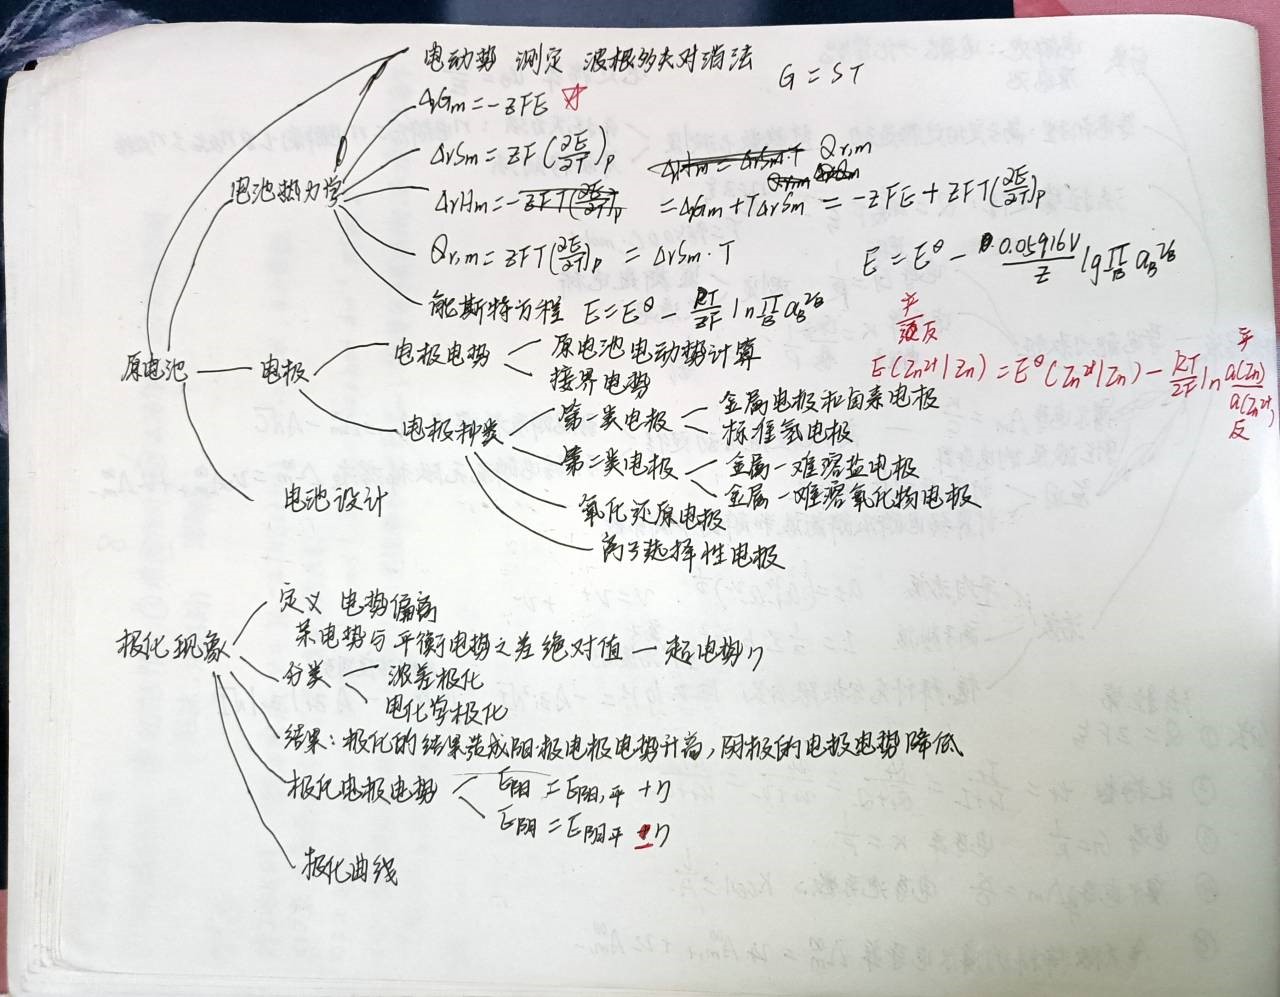 电动势 测定 波根多夫对消法
G = ST
ΔrGm = -zFE ☆
ΔrSm = zF(∂E/∂T)p
Qr,m
电池热力学
ΔrHm = -zFT(∂E/∂T)p = ΔrGm + TΔrSm = -zFE + zFT(∂E/∂T)p
Qr,m = zFT(∂E/∂T)p = ΔrSm · T
E = E^θ - 0.05916V/z lg ∏_B a_B^νB
能斯特方程 E = E^θ - RT/zF ln ∏_B a_B^νB
平
反
原电池
电极
电极电势
原电池电动势计算
接界电势
E(Zn²⁺|Zn) = E^θ(Zn²⁺|Zn) - RT/2F ln a(Zn)/a(Zn²⁺)
平
反
电极种类
第一类电极
金属电极和卤素电极
标准氢电极
第二类电极
金属—难溶盐电极
金属—难溶氧化物电极
电池设计
氧化还原电极
离子选择性电极
极化现象
定义 电势偏离
某电势与平衡电势之差绝对值 — 超电势η
分类 — 浓差极化
电化学极化
结果：极化的结果造成阳极电极电势升高，阴极的电极电势降低
极化电极电势
E阳 = E阳,平 + η
E阴 = E阴平 - η
极化曲线